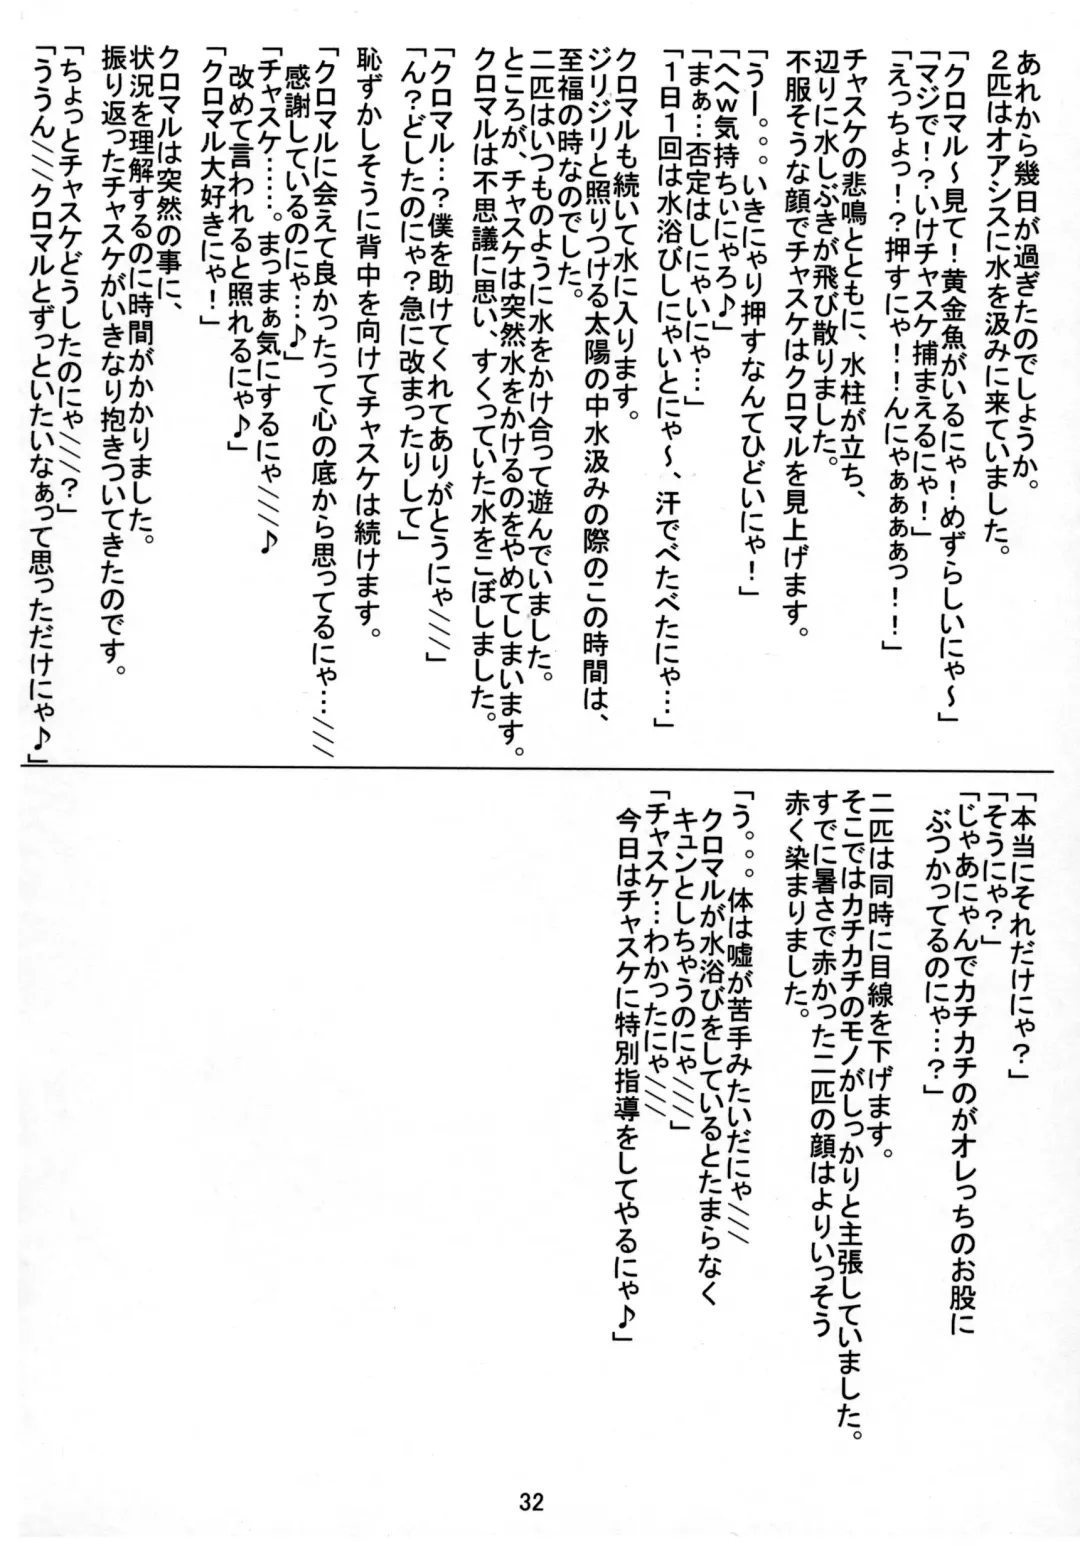 あれから幾日が過ぎたのでしょうか。
２匹はオアシスに水を汲みに来ていました。
「クロマル～見て！黄金魚がいるにゃ！めずらしいにゃ～」
「マジで！？いけチャスケ捕まえるにゃ！」
「えっちょっ！？押すにゃ！！んにゃぁぁぁぁっ！！」
チャスケの悲鳴とともに、水柱が立ち、
辺りに水しぶきが飛び散りました。
不服そうな顔でチャスケはクロマルを見上げます。
「うー。。。いきにゃり押すなんてひどいにゃ！」
「へへｗ気持ちいにゃろ♪」
「まぁ…否定はしにゃいにゃ…」
「１日１回は水浴びしにゃいとにゃ～、汗でべたべたにゃ…」
クロマルも続いて水に入ります。
ジリジリと照りつける太陽の中水汲みの際のこの時間は、
至福の時なのでした。
二匹はいつものように水をかけ合って遊んでいました。
ところが、チャスケは突然水をかけるのをやめてしまいます。
クロマルは不思議に思い、すくっていた水をこぼしました。
「クロマル…？僕を助けてくれてありがとうにゃ///」
「ん？どしたのにゃ？急に改まったりして」
恥ずかしそうに背中を向けてチャスケは続けます。
「クロマルに会えて良かったって心の底から思ってるにゃ…///
感謝しているのにゃ…♪」
「チャスケ……。まっまぁ気にするにゃ///♪
改めて言われると照れるにゃ♪」
「クロマル大好きにゃ！」
クロマルは突然の事に、
状況を理解するのに時間がかかりました。
振り返ったチャスケがいきなり抱きついてきたのです。
「ちょっとチャスケどうしたのにゃ///？」
「ううん///クロマルとずっといたいなぁって思っただけにゃ♪」
「本当にそれだけにゃ？」
「そうにゃ？」
「じゃあにゃんでカチカチのがオレっちのお股に
ぶつかってるのにゃ…？」
二匹は同時に目線を下げます。
そこではカチカチのモノがしっかりと主張していました。
すでに暑さで赤かった二匹の顔はよりいっそう
赤く染まりました。
「う。。。体は嘘が苦手みたいだにゃ///
クロマルが水浴びをしているとたまらなく
キュンとしちゃうのにゃ///」
「チャスケ…わかったにゃ///
今日はチャスケに特別指導をしてやるにゃ♪」
32